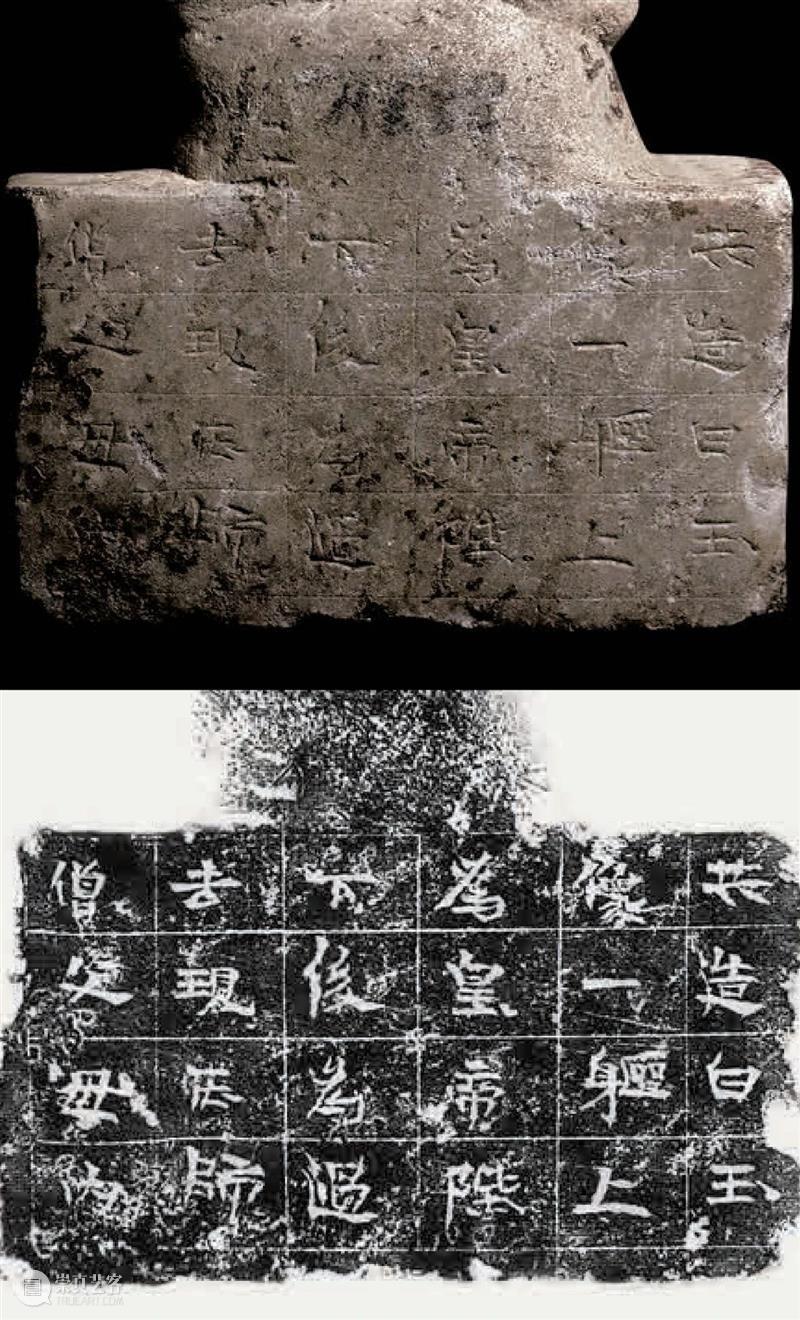 共造白玉
像一軀上
為皇帝陛
下後為過
去現在師
僧父母
共造白玉
像一軀上
為皇帝陛
下後為過
去現在師
僧父母
崇真艺客
TRUEART.COM